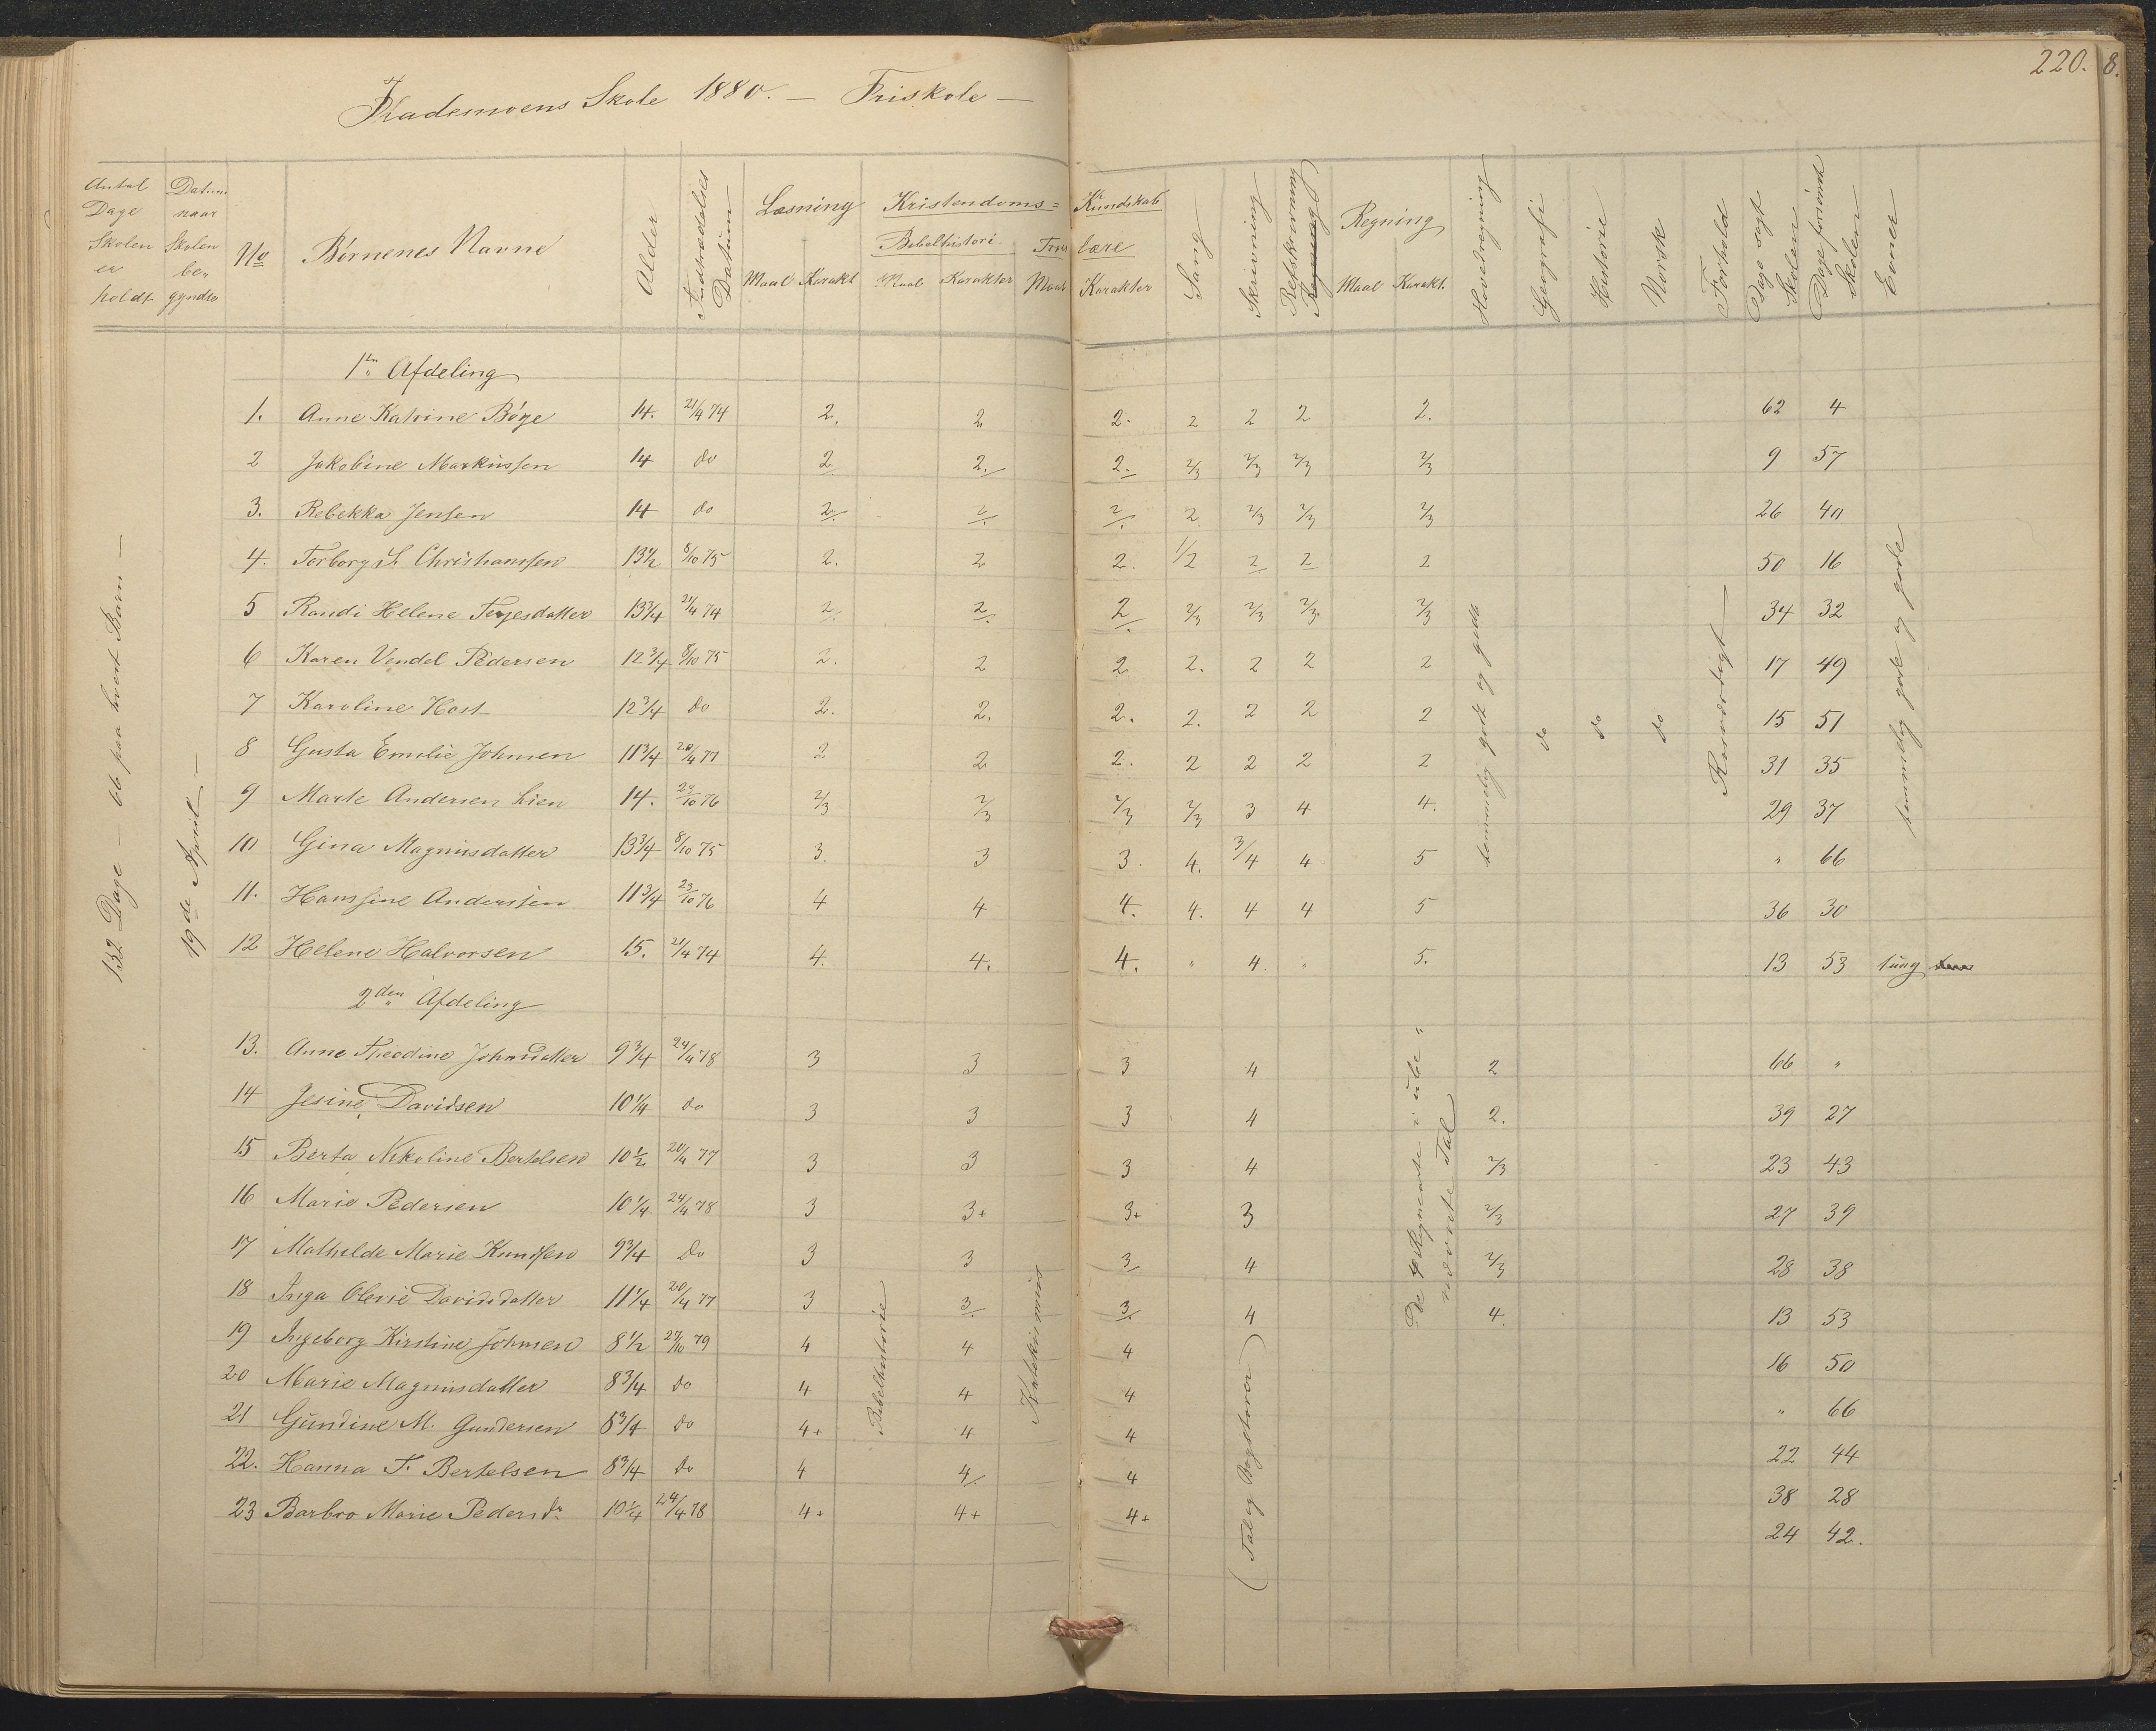 220. 8.
Skole 1880. — Friskole —
Antal Dage Skolen er holdt
Datum naar Skolen begyndte
No
Børnenes Navne
Alder
Indtrædelses Datum
Læsning Maal Karakt
Kristendoms= Kundskab
Bibelhistori. Maal Karakter
Troes lære Maal Karakter
Sang
Skrivning
Retskrivning
Regning Maal Karakt.
Hovedregning
Geografi
Historie
Norsk
Forhold
Dage søgt Skolen
Dage forsømt Skolen
Evner
132 Dage — 66 paa hvert Barn —
19de April —
1ste Afdeling
1. Anne Katrine Bøge 14. 21/4 74 2. 2 2. 2 2 2 2. 62 4
2 Jakobine Markussen 14 do 2 2. 2. 2/3 2/3 2/3 2/3 9 57
3. Rebekka Jensen 14 do 2. 2. 2. 2 2/3 2/3 2/3 26 40
4. Torborg S. Christianssen 13½ 8/10 75 2. 2 2. 1/2 2 2 2 50 16
5 Randi Helene Terjesdatter 13¾ 21/4 74 2. 2. 2. 2/3 2/3 2/3. 2/3 34 32
6 Karen Vendel Pedersen 12¾ 8/10 75 2. 2 2 2. 2 2 2 17 49
7 Karoline Høst 12¾ do 2. 2. 2. 2. 2 2 2 15 51
8 Gusta Emilie Johnsen 11¾ 20/4 77 2 2 2. 2 2 2 2 31 35
9 Marte Andersen Lien 14. 23/10 76 2/3 2/3 2/3 2/3 3 4 4. 29 37
10 Gina Magnusdatter 13¾ 8/10 75 3. 3 3. 4. 3/4 4 5 " 66
11. Hansine Andersen 11¾ 23/10 76 4 4 4. 4. 4 4 5 36 30
12 Helene Halvorsen 15. 21/4 74 4. 4. 4. " 4. " 5. 13 53 tung
temmelig godt og godt
do
do
do
Rosværdigt —
temmelig gode og gode
2den Afdeling
13. Anne Theodine Johnsdatter 9¾ 24/4 78 3 3 3 4 2 66 "
14 Jesine Davidsen 10¼ do 3 3 3 4 2. 39 27
15 Berta Nikoline Bertelsen 10½ 20/4 77 3 3 3 4 2/3 23 43
16 Marie Pedersen 10¼ 24/4 78 3 3+ 3+ 3 2/3 27 39
17 Mathilde Marie Knudsen 9¾ Do 3 3 3 4 2/3 28 38
18 Inga Olivie Davidsdatter 11¼ 20/4 77 3 3 3 4 4. 13 53
19 Ingeborg Kirstine Johnsen 8½ 27/10 79 4 4 4 16 50
20 Marie Magnusdatter 8¾ do 4 4 4 " 66
21 Gundine M. Gundersen 8¾ do 4+ 4 4 22 44
22. Hanna T. Bertelsen 8¾ do 4 4 4 38 28
23 Barbro Marie Pedersdr. 10¼ 24/4 78 4+ 4+ 4+ 24 42.
Bibelhistorie
Katekismus
(Tal og Bogstaver)
De 4 Regnearte i ube=
nævnte Tal